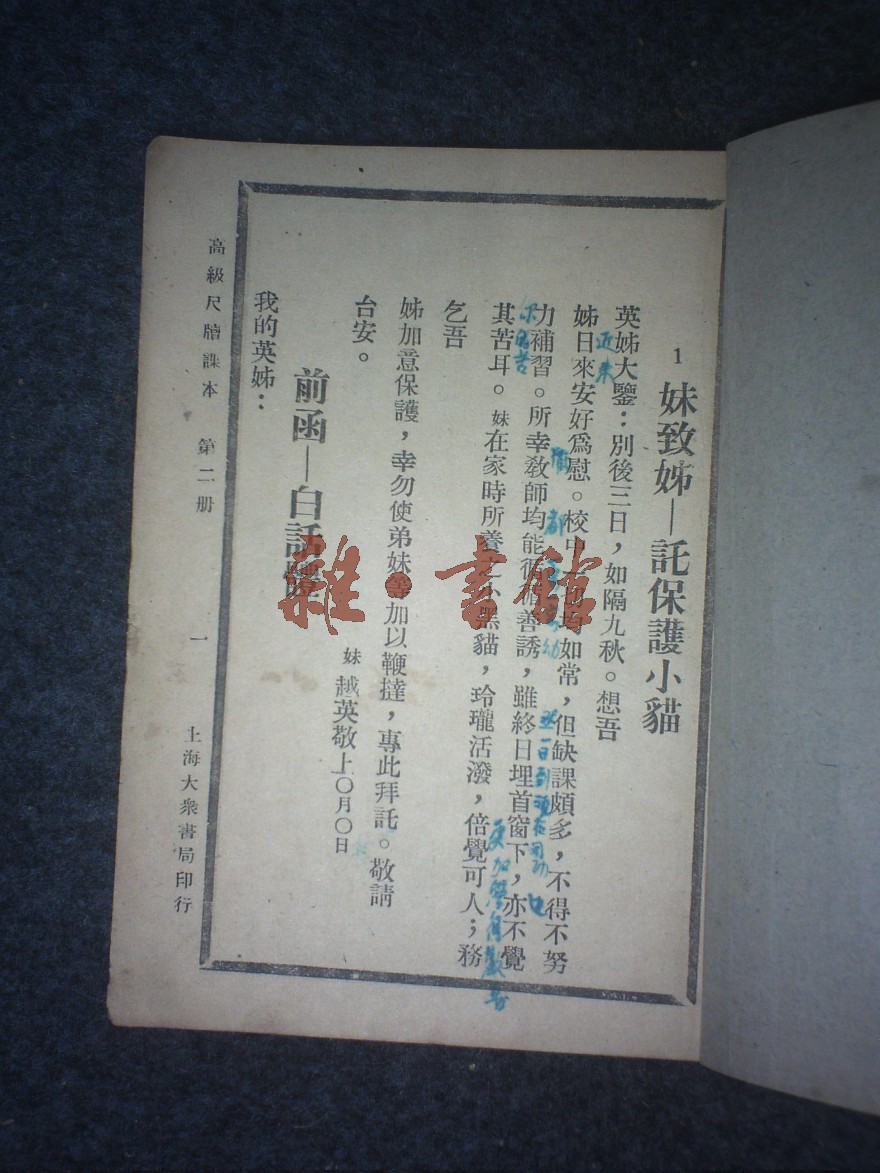 1 妹致姊—託保護小貓
英姊大鑒：別後三日，如隔九秋。想吾
姊日來安好爲慰。校中 均如常，但缺課頗多，不得不努
力補習。所幸教師均能循循善誘，雖終日埋首窗下，亦不覺
其苦耳。妹在家時所養之小黑貓，玲瓏活潑，倍覺可人；務
乞吾
姊加意保護，幸勿使弟妹等加以鞭撻，專此拜託。敬請
台安。
妹 越英敬上〇月〇日
前函—白話體
我的英姊：
高級尺牘課本 第二册 一 上海大衆書局印行
近來
不自苦
都
雜·書館